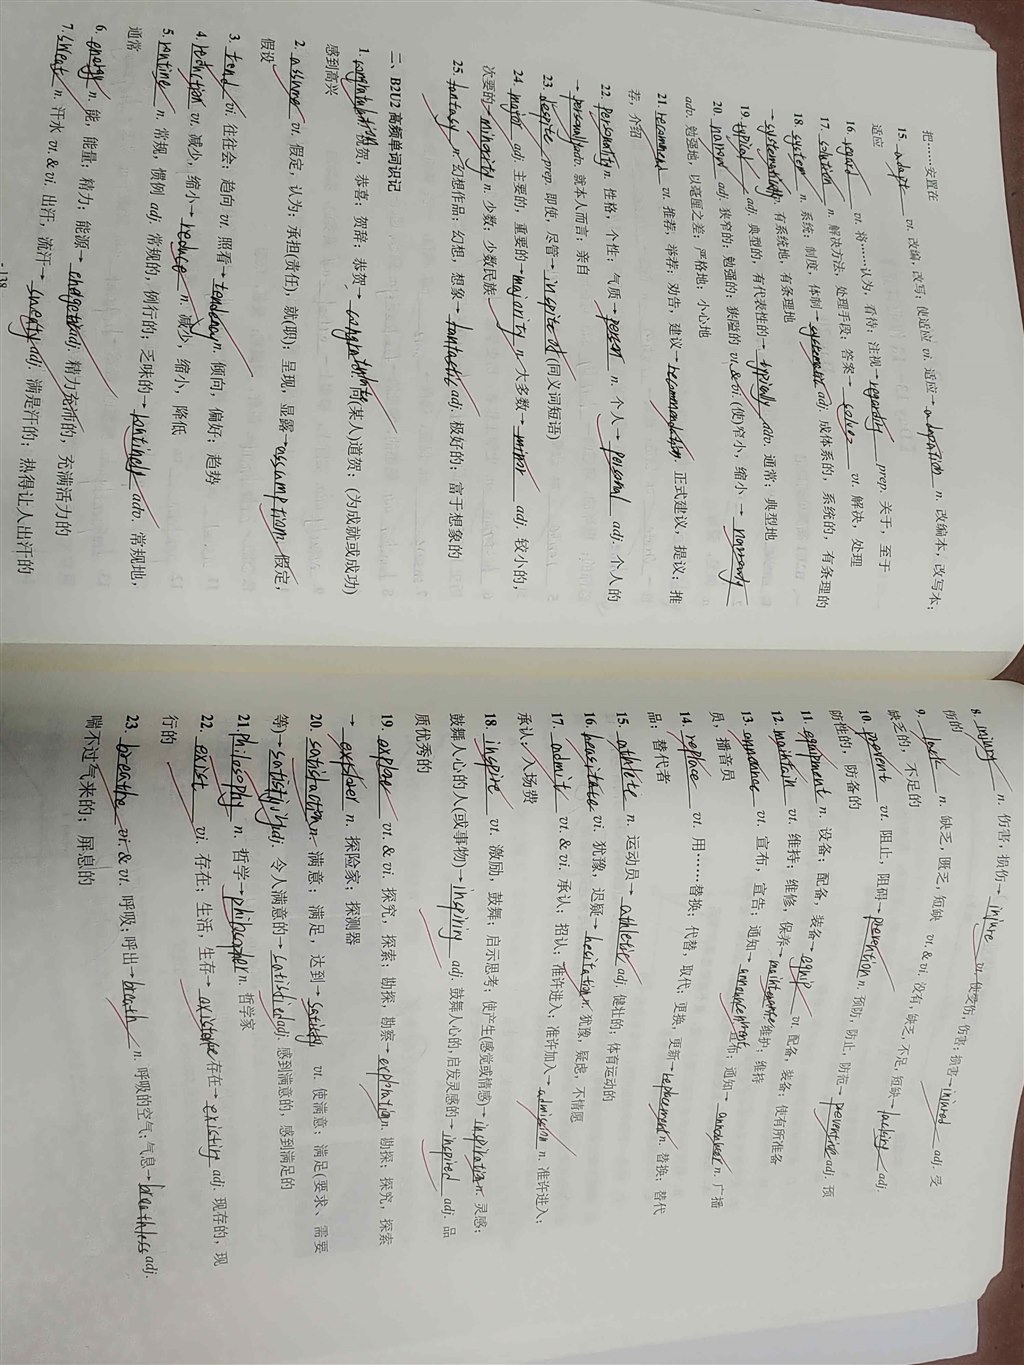 把……安置在
15. adapt vt. 改编; 改写; 使适应 vi. 适应→adaption n. 改编本, 改写本;
适应
16. regard vt. 将……认为, 看待; 注视→regarding prep. 关于, 至于
17. solution n. 解决方法, 处理手段; 答案→solve vt. 解决, 处理
18. system n. 系统; 制度, 体制→systematic adj. 成体系的, 系统的, 有条理的
→systematically 有系统地, 有条理地
19. typical adj. 典型的, 有代表性的→typically adv. 通常; 典型地
20. narrow adj. 狭窄的; 勉强的; 狭隘的 vt.&vi. (使)窄小, 缩小→narrowly
adv. 勉强地, 以毫厘之差; 严格地; 小心地
21. recommend vt. 推荐, 举荐; 劝告, 建议→recommendation 正式建议, 提议; 推
荐, 介绍
22. personality n. 性格, 个性; 气质→person n. 个人→personal adj. 个人的
→personally adv. 就本人而言; 亲自
23. despite prep. 即使, 尽管→in spite of (同义词短语)
24. major adj. 主要的, 重要的→majority n. 大多数→minor adj. 较小的,
次要的→minority n. 少数; 少数民族
25. fantasy n. 幻想作品; 幻想, 想象→fantastic adj. 极好的; 富于想象的
二、B2U2 高频单词识记
1. 祝贺, 恭喜; 贺辞; 恭贺→ 向(某人)道贺; (为成就或成功)
感到高兴
2. assume vt. 假定, 认为; 承担(责任), 就(职); 呈现, 显露→assumption 假定,
假设
3. tend vi. 往往会; 趋向 vt. 照看→tendency n. 倾向, 偏好; 趋势
4. reduction vt. 减少, 缩小→reduce n. 减少, 缩小, 降低
5. routine n. 常规, 惯例 adj. 常规的, 例行的; 乏味的→routinely adv. 常规地,
通常
6. energy n. 能, 能量; 精力; 能源→ adj. 精力充沛的, 充满活力的
7. sweat n. 汗水 vt.&vi. 出汗, 流汗→sweaty adj. 满是汗的; 热得让人出汗的
·138
8. injury n. 伤害, 损伤→injure vt. 使受伤, 伤害; 损害→injured adj. 受
伤的
9. lack n. 缺乏, 匮乏, 短缺 vt.&vi. 没有, 缺乏, 不足, 短缺→lacking adj.
缺乏的, 不足的
10. prevent vt. 阻止, 阻碍→prevention n. 预防, 防止, 防范→preventive adj. 预
防性的, 防备的
11. equipment n. 设备; 配备, 装备→equip vt. 配备, 装备; 使有所准备
12. maintain vt. 维持; 维修, 保养→maintenance 维护; 维持
13. announce vt. 宣布, 宣告; 通知→announcement 宣布; 通知→announcer n. 广播
员, 播音员
14. replace vt. 用……替换; 代替, 取代; 更换, 更新→replacement n. 替换; 替代
品; 替代者
15. athlete n. 运动员→athletic adj. 健壮的; 体育运动的
16. hesitate vi. 犹豫, 迟疑→hesitation n. 犹豫, 疑虑, 不情愿
17. admit vt.&vi. 承认; 招认; 准许进入; 准许加入→admission n. 准许进入;
承认; 入场费
18. inspire vt. 激励, 鼓舞; 启示思考; 使产生(感觉或情感)→inspiration n. 灵感;
鼓舞人心的人(或事物)→inspiring adj. 鼓舞人心的, 启发灵感的→inspired adj. 品
质优秀的
19. explore vt.&vi. 探究, 探索; 勘探, 勘察→exploration n. 勘探; 探究, 探索
→explorer n. 探险家; 探测器
20. satisfaction n. 满意; 满足, 达到→satisfy vt. 使满意; 满足(要求、需要
等)→satisfying adj. 令人满意的→satisfied adj. 感到满意的, 感到满足的
21. philosophy n. 哲学→philosopher n. 哲学家
22. exist vi. 存在; 生活, 生存→existence 存在→existing adj. 现存的, 现
行的
23. breathe vi.&vt. 呼吸; 呼出→breath n. 呼吸的空气; 气息→breathless adj.
喘不过气来的; 屏息的